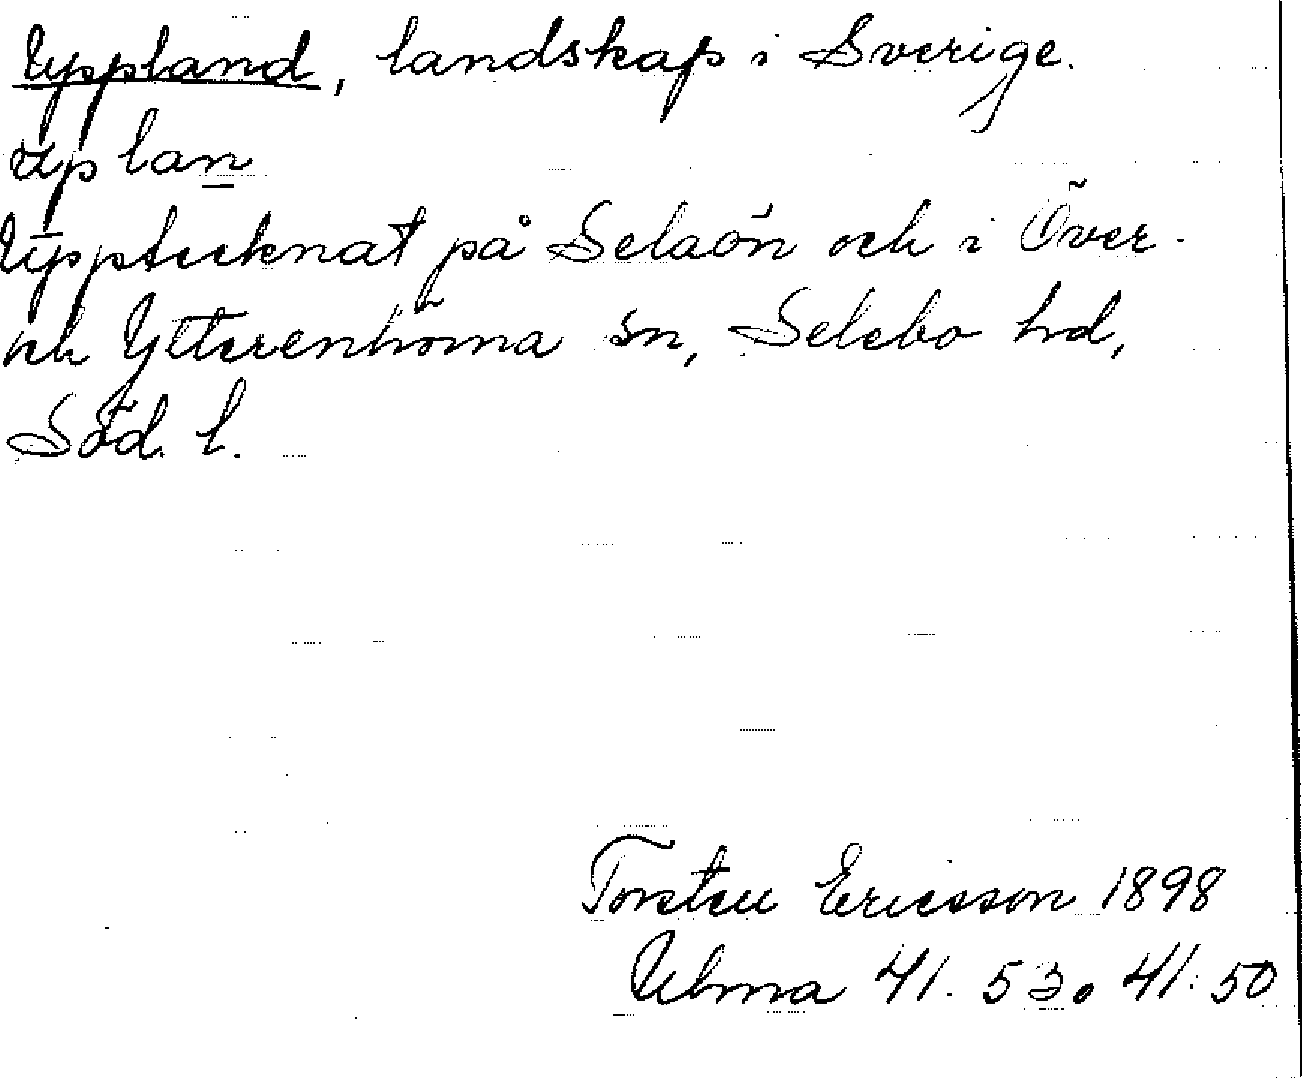 Uppland, landskap i Sverige.
upplan
Upptecknat på Selaön och i Över-
och Ytterenhörna sn, Selebo hd,
Söd. l.
Torsten Ericsson 1898
Ulma 41. 53. 41:50